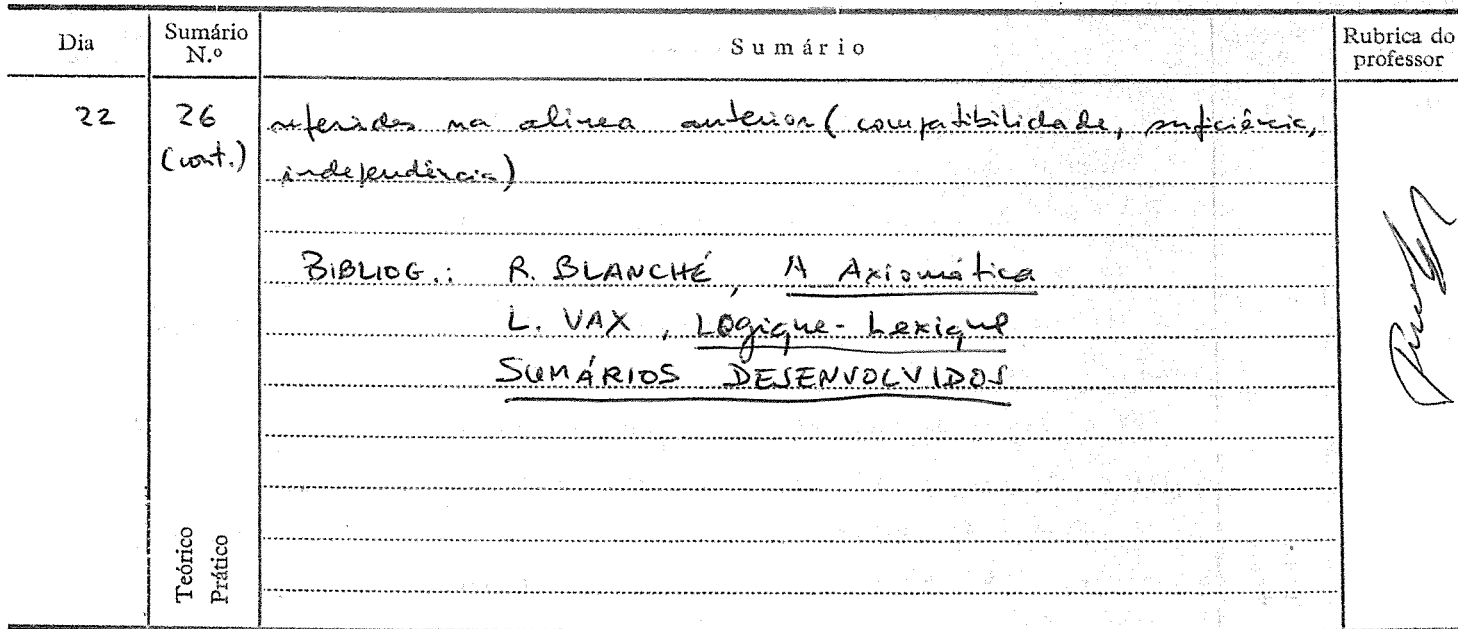 Dia
Sumário N.º
Sumário
Rubrica do professor
22
26
(cont.)
referidas na alínea anterior (compatibilidade, suficiência,
independência)
BIBLIOG.: R. BLANCHÉ, A Axiomática
L. VAX, Logique-Lexique
SUMÁRIOS DESENVOLVIDOS
Teórico
Prático